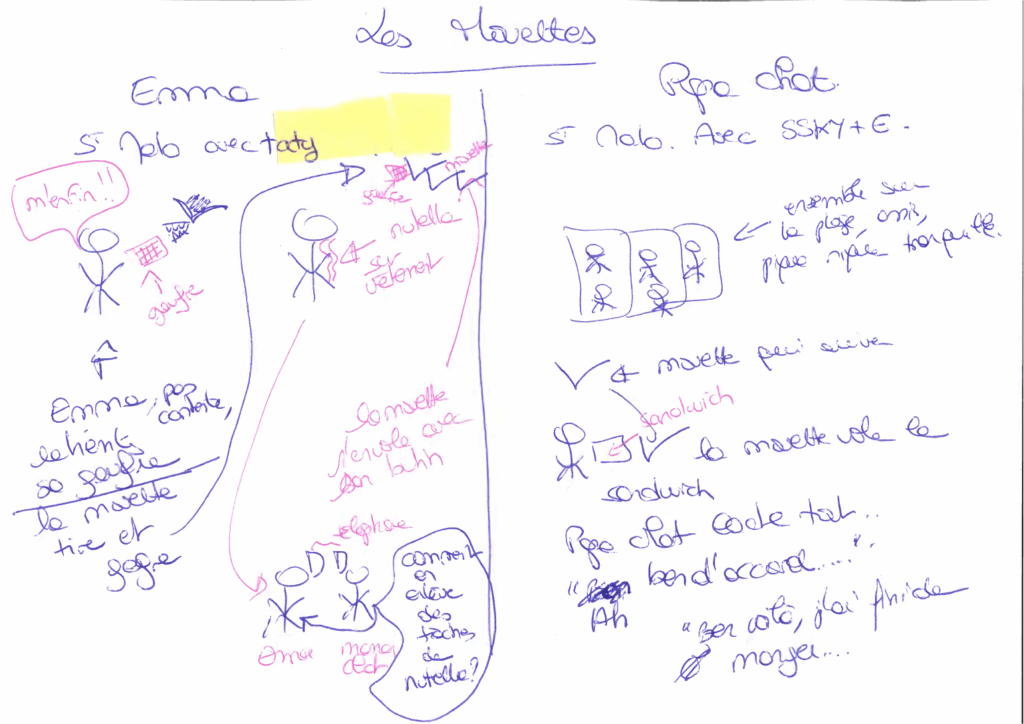 Les Mouettes
Emma
St Malo avec taty
m'enfin!!
gaufre
Emma, pas
contente,
retient
sa gaufre
la mouette
tire et
gagne
mouette
gaufre
nutella
sur
vêtement
la mouette
s'envole avec
son butin
téléphone
Emma
comment
on
enlève
des
taches
de
nutella?
Papa chat.
St Malo. Avec SSKY + E.
ensemble sur
la plage, assis,
pique nique tranquille.
mouette qui arrive
sandwich
la mouette vole le
sandwich
Papa chat reste
"
Ah
ben d'accord....".
"Ben voilà, j'ai fini de
manger....